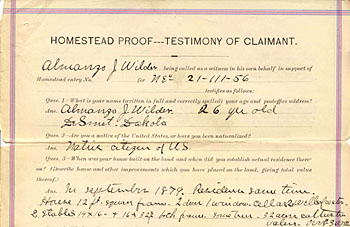 HOMESTEAD PROOF---TESTIMONY OF CLAIMANT.
Almanzo J Wilder being called as a witness in his own behalf in support of
Homestead entry No. for NE 21-111-56
testifies as follows:
Ques. 1—What is your name (written in full and correctly spelled) your age and postoffice address?
Ans. Almanzo J. Wilder 26 yr old
Dakota
Ques. 2—Are you a native of the United States, or have you been naturalized?
Ans. Native citizen of US.
Ques. 3—When was your house built on the land and when did you establish actual residence there-
on? (Describe house and other improvements which you have placed on the land, giving total value
thereof.)
Ans. In september 1879. Residence same time.
House 12 ft. square frame. 2 door 1 window.
2 stables 14x16 + 16x32 frame